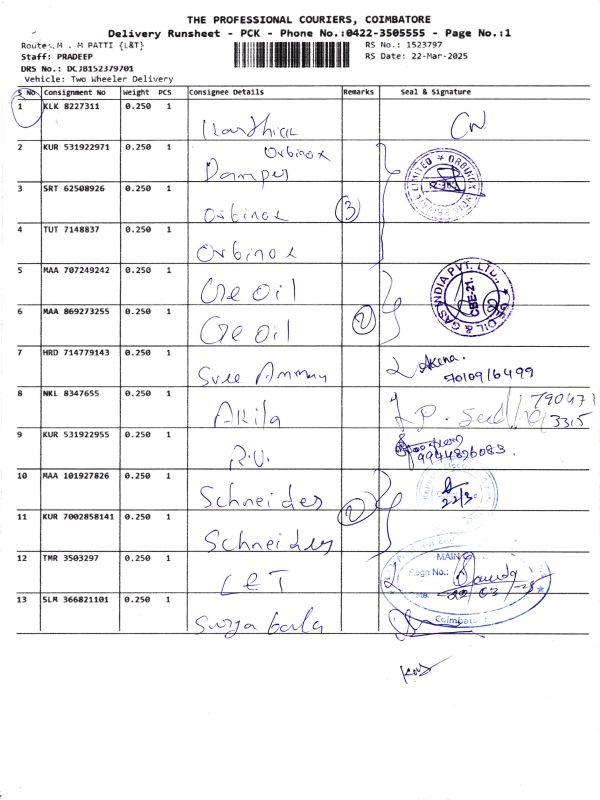 THE PROFESSIONAL COURIERS, COIMBATORE
Delivery Runsheet - PCK - Phone No.:0422-3505555 - Page No.:1
Route: M . M PATTI {L&T}
RS No.: 1523797
Staff: PRADEEP
RS Date: 22-Mar-2025
DRS No.: DCJB152379701
Vehicle: Two Wheeler Delivery
S No Consignment No Weight PCS Consignee Details Remarks Seal & Signature
1 KLK 8227311 0.250 1
Karthick
2 KUR 531922971 0.250 1 Orbinox
3 SRT 62508926 0.250 1
Orbinox 3
4 TUT 7148837 0.250 1
Orbinox
5 MAA 707249242 0.250 1
Ge oil
6 MAA 869273255 0.250 1 2
Ge oil
7 HRD 714779143 0.250 1
Sree Amman
8 NKL 8347655 0.250 1
Akila
9 KUR 531922955 0.250 1
R.V. 9944826083
10 MAA 101927826 0.250 1
Schneider 22/3
11 KUR 7002858141 0.250 1 2
Schneider
12 TMR 3503297 0.250 1 MAIN
L&T Regn No.:
13 SLM 366821101 0.250 1
Surya bala
ORBINOX
GE OIL & GAS INDIA PVT. LTD.,
CBE-21.